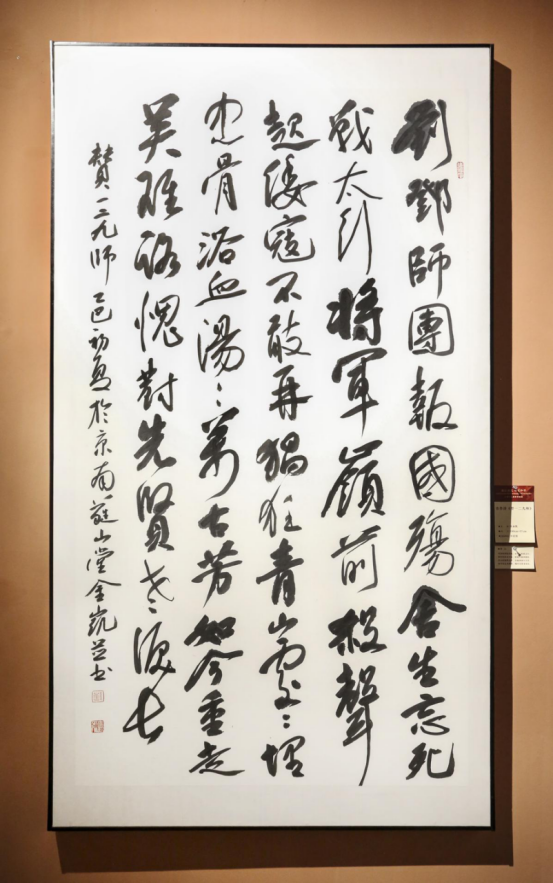 劉鄧師團報國殤舍生忘死
戰太行將軍嶺前殺聲
起倭寇不敢再猖狂青山處〻埋
忠骨浴血湯〻萬古芳如今重走
英雄路愧對先賢淚長
贊一二九師 乙巳初夏於京南山堂金凱并書